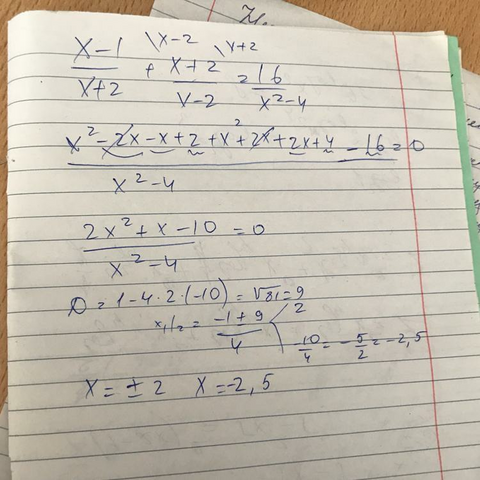 x-1/x+2 \x-2 + x+2/x-2 \x+2 = 16/x²-4
x² - 2x - x + 2 + x² + 2x + 2x + 4 - 16 = 0/x²-4
2x² + x - 10/x²-4 = 0
D = 1 - 4 · 2 · (-10) = √81 = 9
x₁/₂ = -1 + 9/4 2
-10/4 = -5/2 = -2,5
x = ± 2 x = -2,5